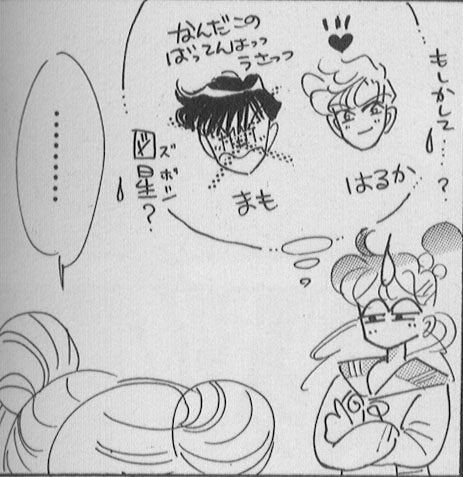 もしかして…?
はるか
なんだこの
ばってんはっっ
うさっっ
まも
図星?
ズボシ
………